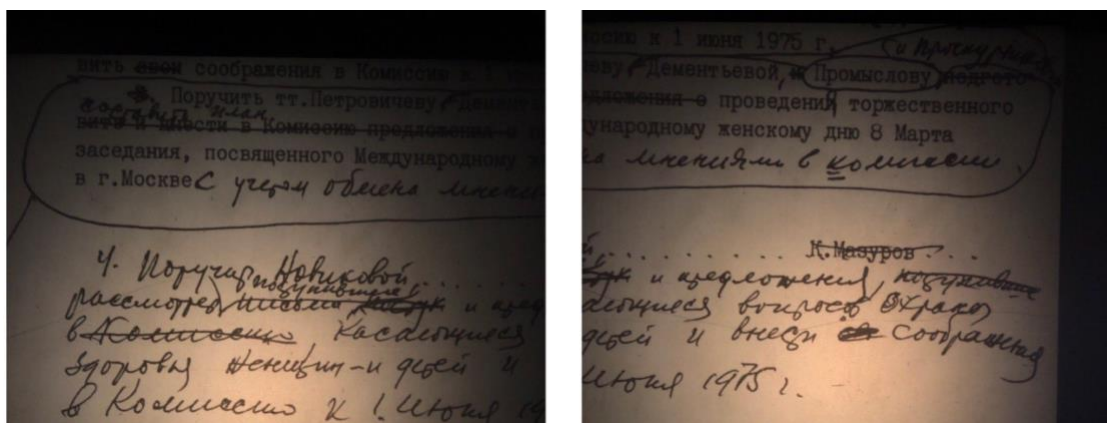 вить свои соображения в Комиссию к 1
3. Поручить тт.Петровичеву, Демен
составить план
вить и внести в Комиссию предложения о
заседания, посвященного Международному
в г.Москве с учетом обмена мнени
4. Поручить Новиковой
поступившие
рассмотреть письма и пред
в Комиссию касающиеся
здоровья женщин и детей и
в Комиссию к 1 июня 19
ссию к 1 июня 1975 г.
(и
чеву, Дементьевой, и Промыслову подгото
едложения о проведении торжественного
дународному женскому дню 8 Марта
на мнениями в комиссии
К.Мазуров
и предложения, поступившие
ающиеся вопросов охраны
детей и внести соображения
июня 1975 г.